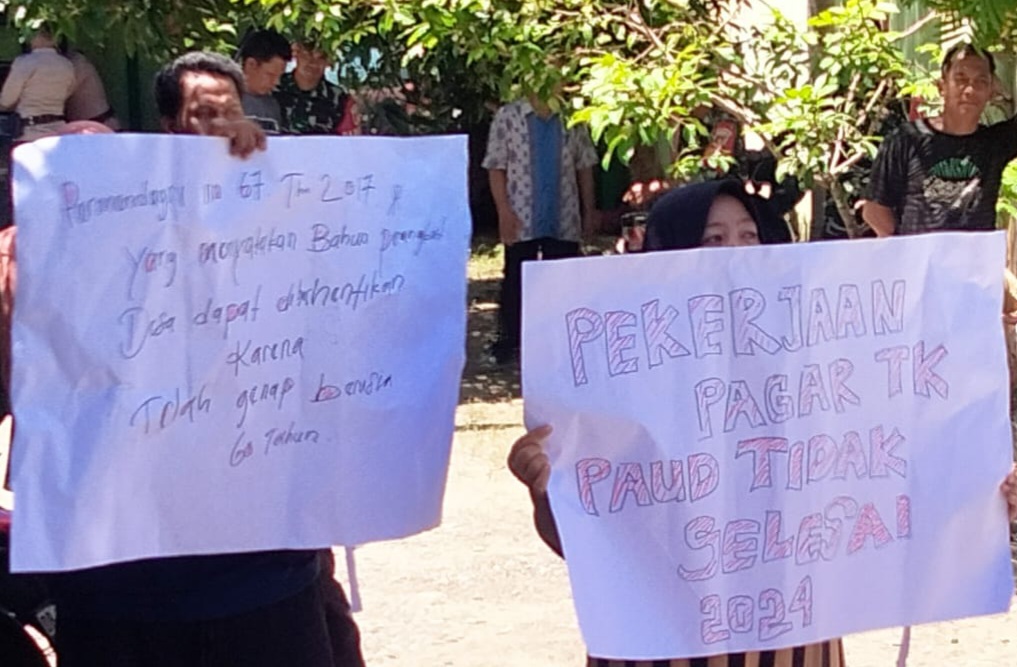 Permendagri no 67 Thn 2017
yang menyatakan Bahwa perangkat
Desa dapat diberhentikan
Karena
Telah genap berusia
60 Tahun.
PEKERJAAN
PAGAR TK
PAUD TIDAK
SELESAI
2024